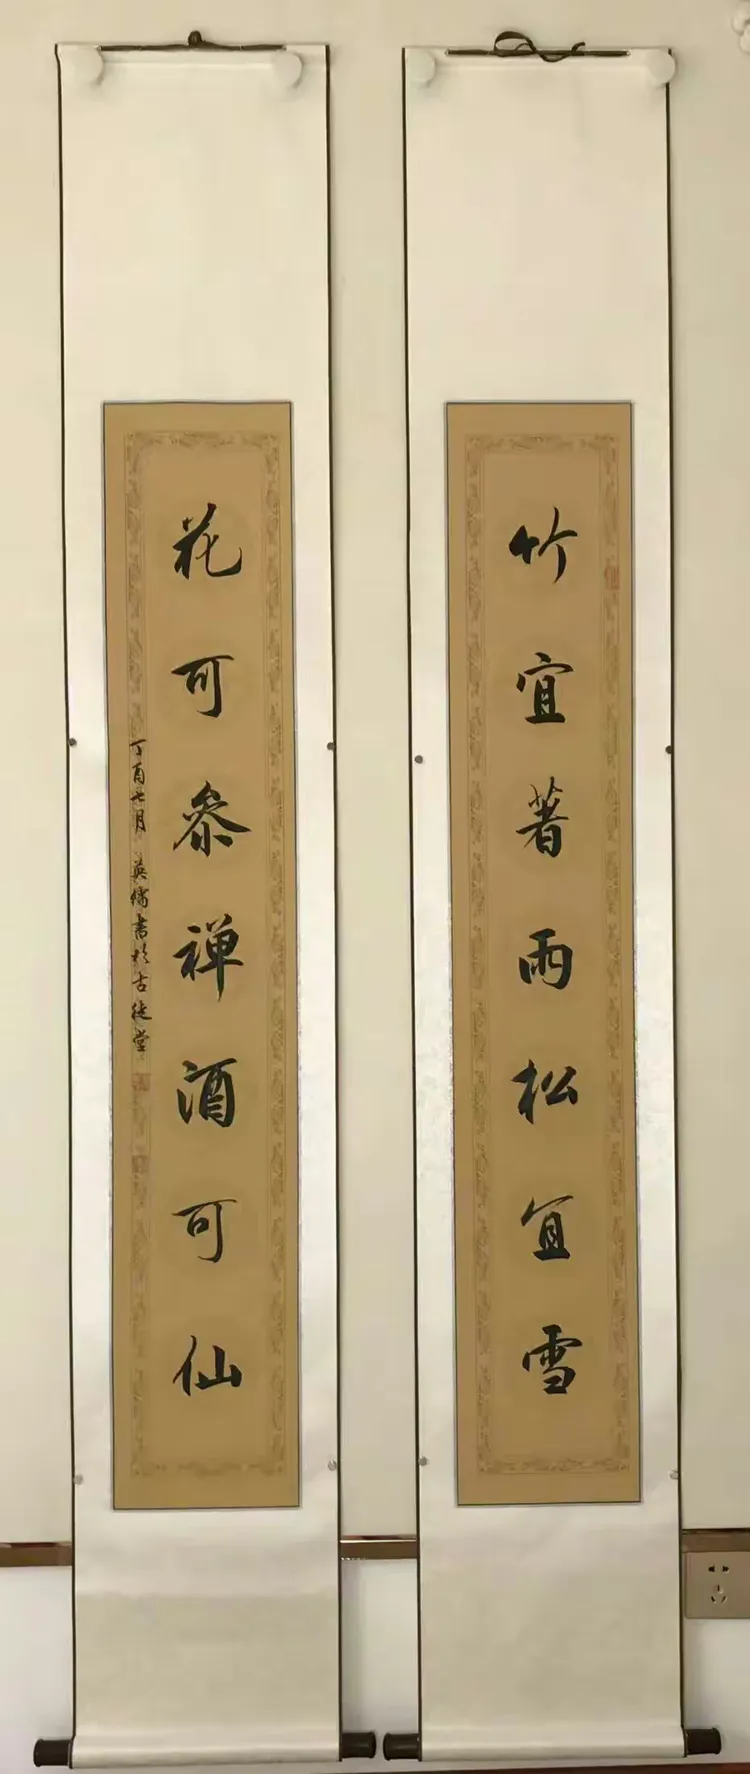 竹宜著雨松宜雪
花可参禅酒可仙
丁酉七月 英儒書於古陡堂